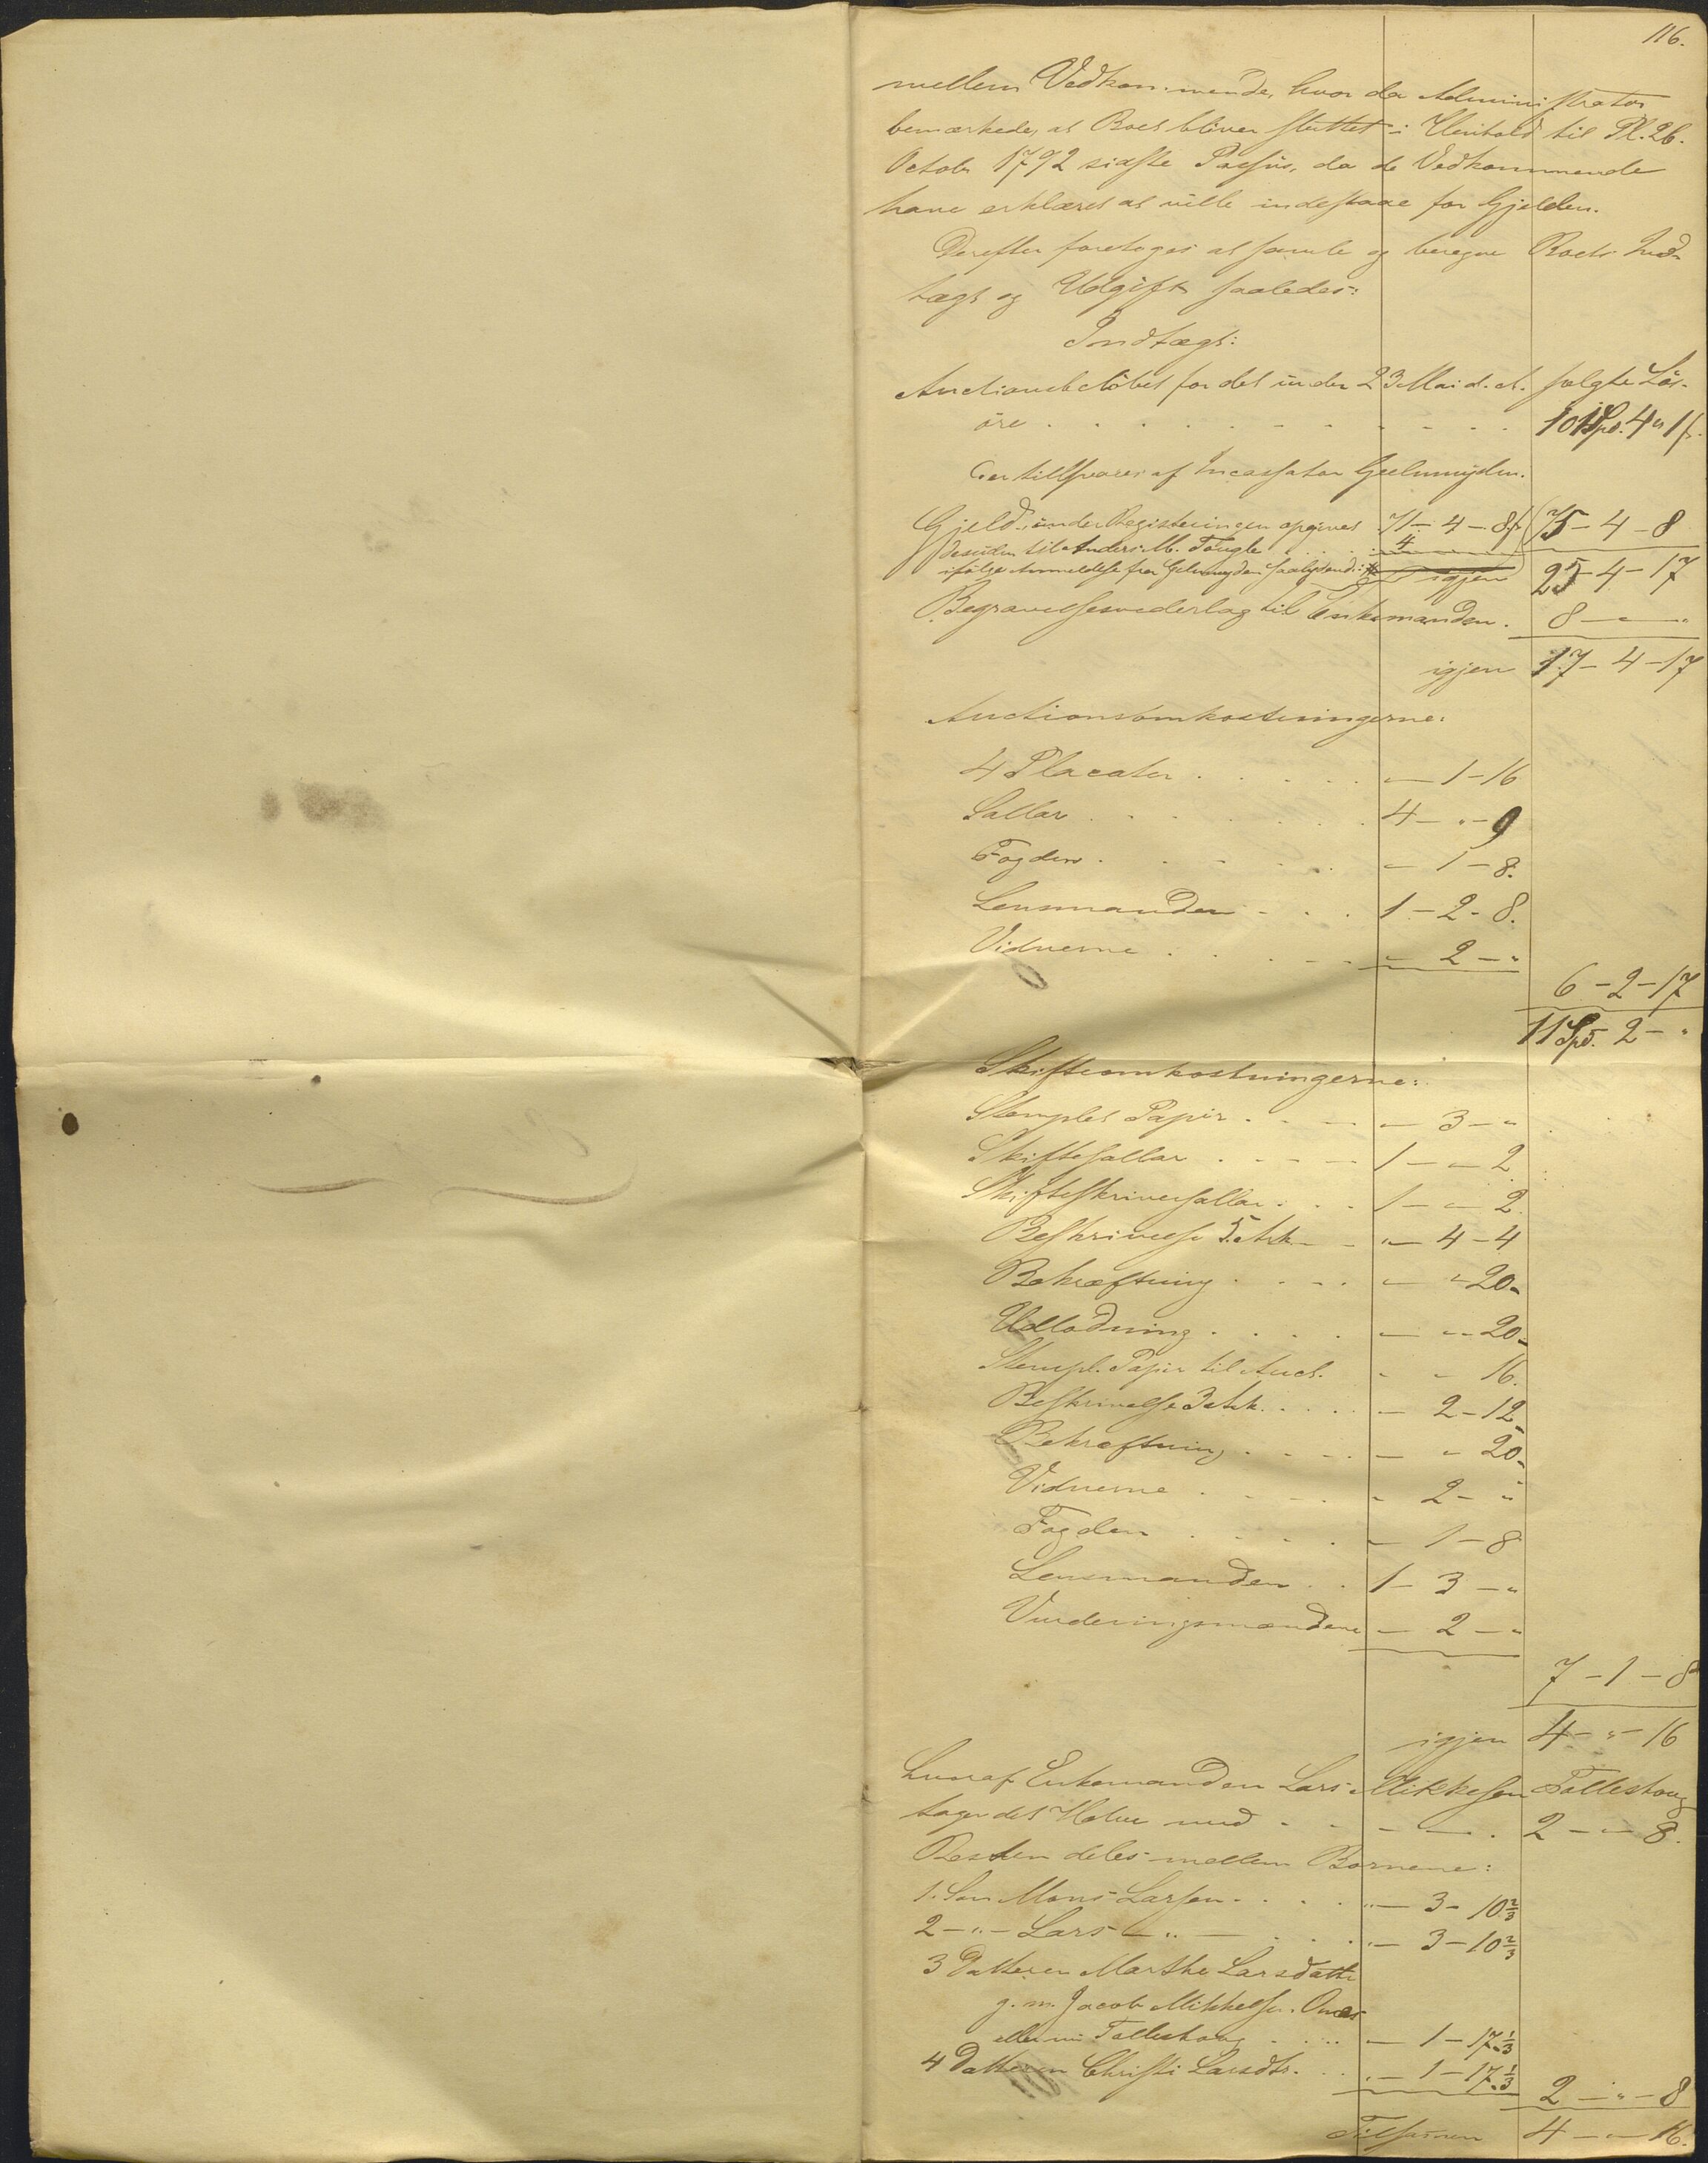 116.
mellem Vedkommende, hvor da Administrator
bemærkede, at Boet bliver sluttet i Henhold til Pl. 26.
Octobr 1792 sidste Passus, da de Vedkommende
have erklæret at ville indestaae for Gjelden.
Derefter foretoges at samle og beregne Boets Ind-
tægt og Udgift saaledes:
Indtægt:
Auctionsbeløbet for det under 23 Mai d. A. solgte Lös-
öre . . . . . . . . . . 101 Spd. 4 " 1 s.
der tilsvares af Incassator Geelmuyden.
Gjeld under Registeringen opgivet 71 - 4 - 8 75 - 4 - 8
desuden til Anders M. Tougle . . . 4
ifölge Anmeldelse fra Gelmuyden igjen 25 - 4 - 17
Begravelsesvederlag til Enkemanden. 8 - " - "
igjen 17 - 4 - 17
Auctionsomkostningerne:
4 Placater . . . . . — 1 - 16
Sallar . . . . . . . 4 - " - 9
Fogden . . . . . . — 1 - 8.
Lensmanden . . . 1 - 2 - 8.
Vidnerne . . . . . — 2 - "
6 - 2 - 17
11 Spd. 2 - "
Skifteomkostningerne:
Stemplet Papir . . . — 3 - "
Skiftesallar . . . . 1 - " - 2
Skifteskriversallar . . . 1 - " - 2
Beskrivelse 5 Ark . . " - 4 - 4
Bekræftning . . . . — " 20 -
Udlodning . . . . . — " - 20 -
Stempl. Papir til Auct. " " 16.
Beskrivelse 3 Ark . . . . — 2 - 12
Bekræftning . . . . — " 20 -
Vidnerne . . . . . " 2 - "
Fogden . . . . . — 1 - 8
Lensmanden . . 1 - 3 - "
Vurderingsmændene — 2 - "
7 - 1 - 8
igjen 4 - " - 16
hvoraf Enkemanden Lars Mikkelsen Talleshoug
tager det Halve med . . . . . 2 - " - 8.
Resten deles mellem Børnene:
1. Søn Mons Larsen . . . . " - 3 - 10 2/3
2 - " - Lars - " - . . . " - 3 - 10 2/3
3 Datteren Marthe Larsdatter
g. m. Jacob Mikkelsen
eller nu Talleshoug . . . — 1 - 17 1/3
4 Datteren Christi Larsdtr. . . . — 1 - 17 1/3 2 - " - 8
Tilsammen 4 - " - 16.